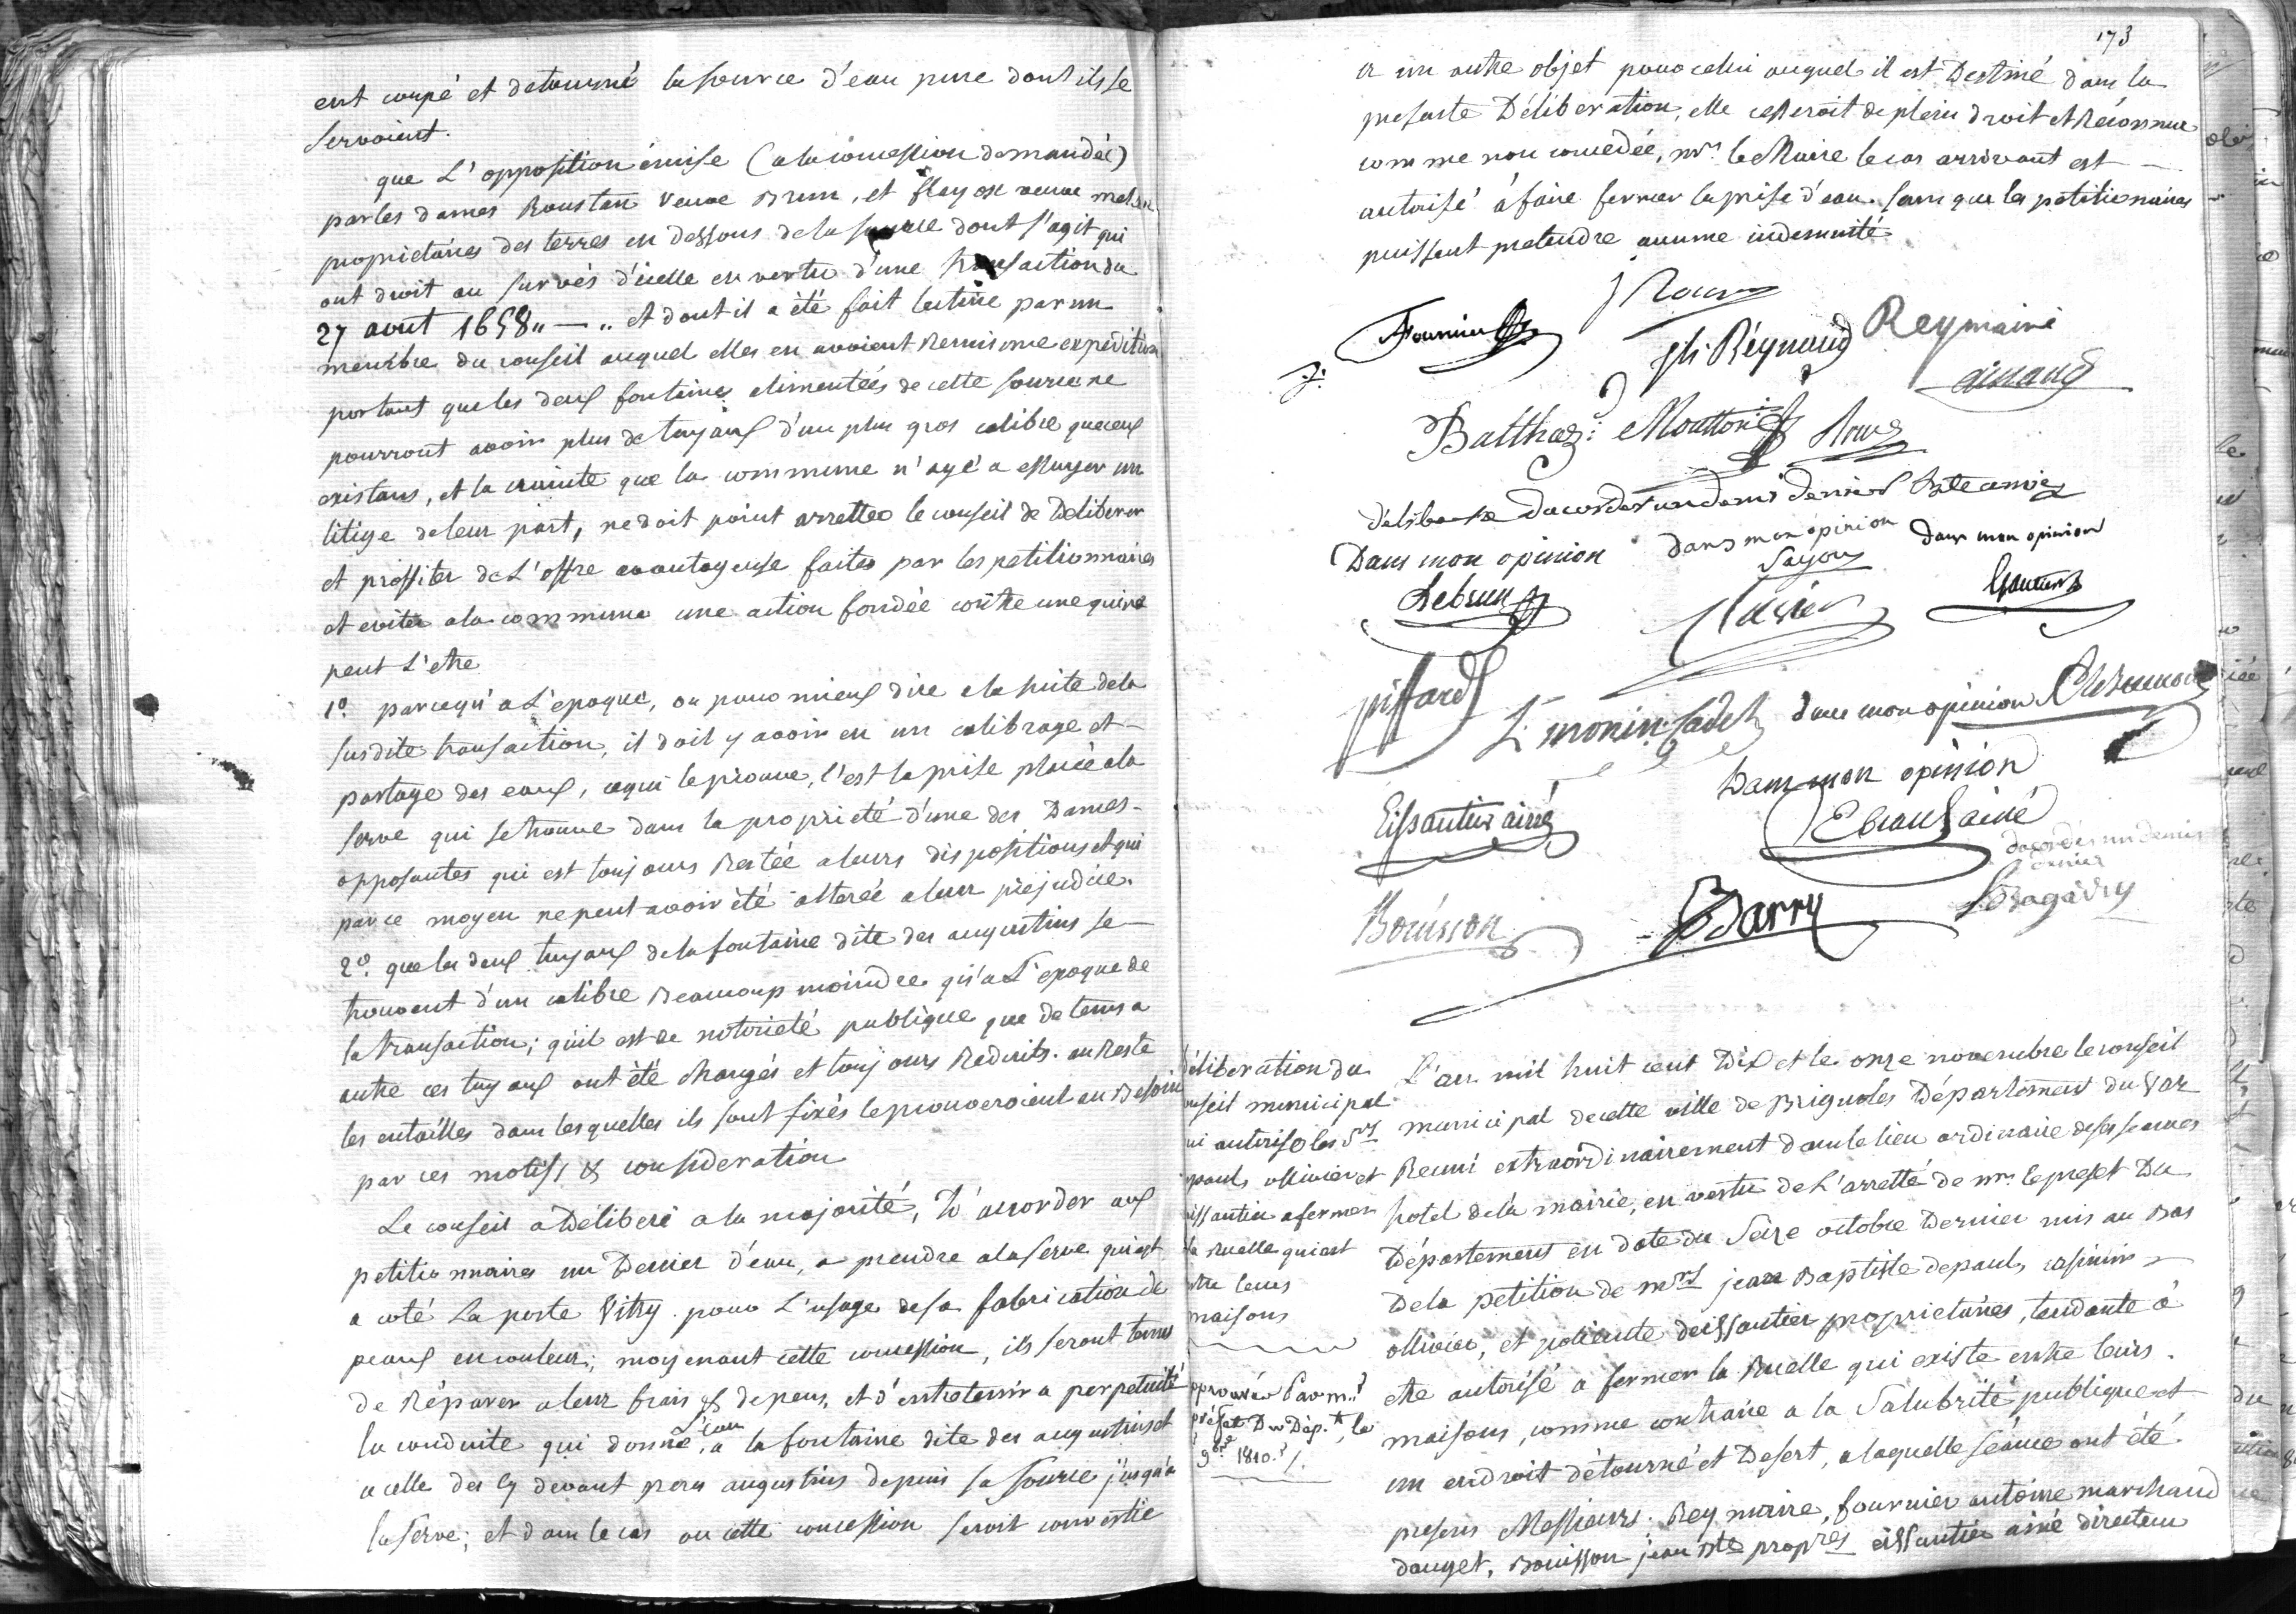 ent coupé et detourné la source d'eau pure dont ils se
servoient.
que L'opposition émise (a la concession demandée)
par les dames Roustan veuve Brun, et flayose veuve
proprietaires des terres en dessous de la source dont s'agit qui
ont droit au survès d'icelle en vertu d'une transaction du
27 aout 1658 " — " et dont il a été fait lecture par un
membre du conseil auquel elles en avoient Remis une expedition
portant que les deux fontaines alimentées de cette source ne
pourront avoir plus de tuyaux d'un plus gros calibre que ceux
existans, et la crainte que la commune n'aye a essuyer un
litige de leur part, ne doit point arretter le conseil de Deliberer
et proffiter de L'offre avantageuse faite par les petitionnaires
et eviter a la commune une action fondée contre une qui ne
peut L'etre
1º. parcequ'a L'epoque, ou pour mieux dire a la suite de la
susdite transaction, il doit y avoir eu un calibrage et
partage des eaux, ce qui le prouve, c'est la prise placée a la
serve qui se trouve dans la propriété d'une des Dames
opposantes qui est toujours Restée a leurs dispositions et qui
par ce moyen ne peut avoir été alterée a leur préjudice.
2º. que les deux tuyaux de la fontaine dite des augustins se
trouvent d'un calibre Beaucoup moindre qu'a L'epoque de
la transaction; qu'il est de notorieté publique que de tems a
autre ces tuyaux ont été changés et toujours Reduits. au Reste
les entailles dans lesquelles ils sont fixés le prouveroient au Besoin
par ces motifs & consideration
Le conseil a Déliberé a la majorité, D'accorder aux
petitionnaires un Denier d'eau, a prendre a la serve qui est
a coté La porte Vitry. pour L'usage de sa fabrication de
peaux en couleur; moyenant cette concession, ils seront tenus
de Réparer a leur frais & depens, et d'entretenir a perpetuité
la conduite qui donne L'eau a la fontaine dite des augustins et
a celle des cy devant peres augustins depuis sa source jusqu'a
la serve; et dans le cas ou cette concession seroit convertie
173
a un autre objet pour celui auquel il est Destiné dans la
presente Déliberation, elle cesseroit de plein droit et Reconnue
comme non concedée, mr. le Maire le cas arrivant est
autorisé à faire fermer la prise d'eau. sans que les petitionnaires
puissent pretendre aucune indemnité
Fournier
Jh. Réynaud
Reymaire
Balthaz: Moutton
délibere d'accorder un demi denier
Dans mon opinion
dans mon opinion
dans mon opinion
Lebrun
Sayou
Gautier
piffard
L. monin Cadet
dans mon opinion
Eissautier ainé
Dans mon opinion
Ebrard ainé
d'accorder un demi
denier
Bouisson
Barry
L. Bagarry
déliberation du
conseil municipal
qui autorise les Srs
depauls ollivier et
eissautier a fermer
la Ruelle qui est
entre leurs
maisons
approuvée Par mr.
préfet Du Dépt., le
9bre 1810./.
L'an mil huit cent Dix et le onze novembre le conseil
municipal de cette ville de Brignoles Département du Var
Reuni extraordinairement dans le lieu ordinaire de ses seances
hotel de la mairie, en vertu de L'arretté de mr. le prefet Du
Département en date du Seize octobre Dernier mis au Bas
De la petition de mrs jean Baptiste depauls, casimir
ollivier, et policarte d'eissautier proprietaires, tendante à
etre autorisé a fermer la Ruelle qui existe entre leurs
maisons, comme contraire a la Salubrité publique et
un endroit détourné et Desert, a laquelle séance ont été
presens Messieurs. Rey maire, fournier antoine marchand
dauget, Bouisson jean Bte propres eissautier ainé directeur